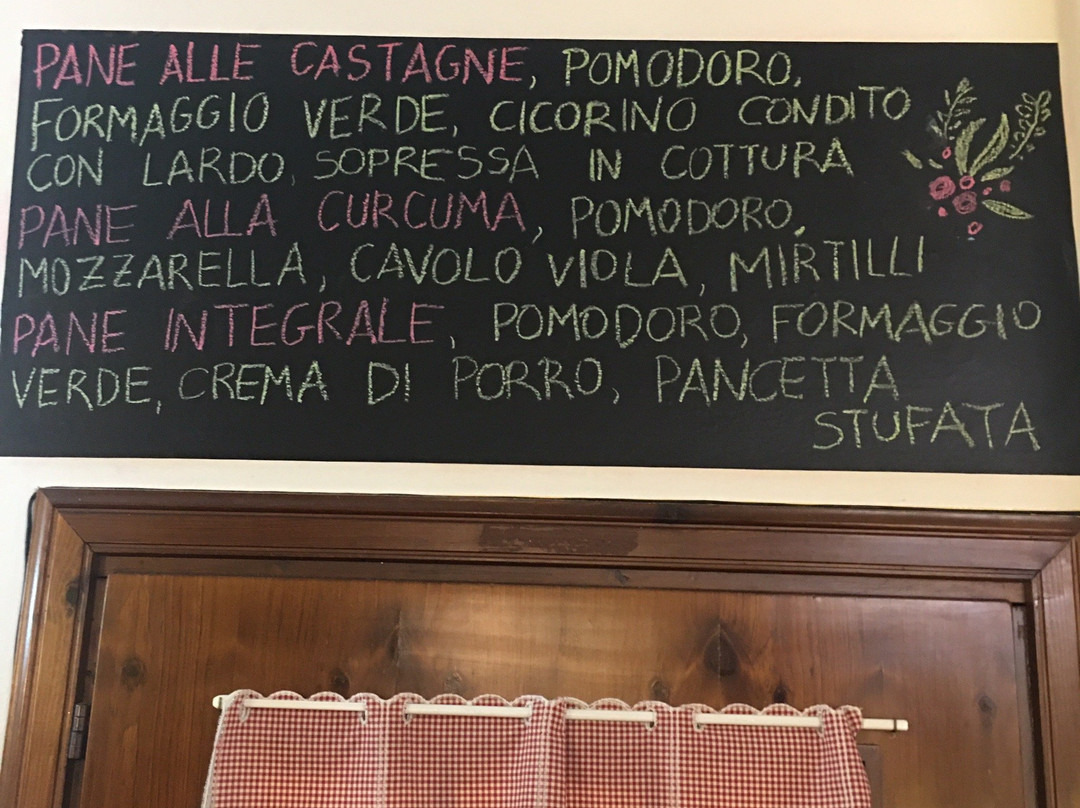 PANE ALLE CASTAGNE, POMODORO,
FORMAGGIO VERDE, CICORINO CONDITO
CON LARDO, SOPRESSA IN COTTURA
PANE ALLA CURCUMA, POMODORO,
MOZZARELLA, CAVOLO VIOLA, MIRTILLI
PANE INTEGRALE, POMODORO, FORMAGGIO
VERDE, CREMA DI PORRO, PANCETTA
STUFATA